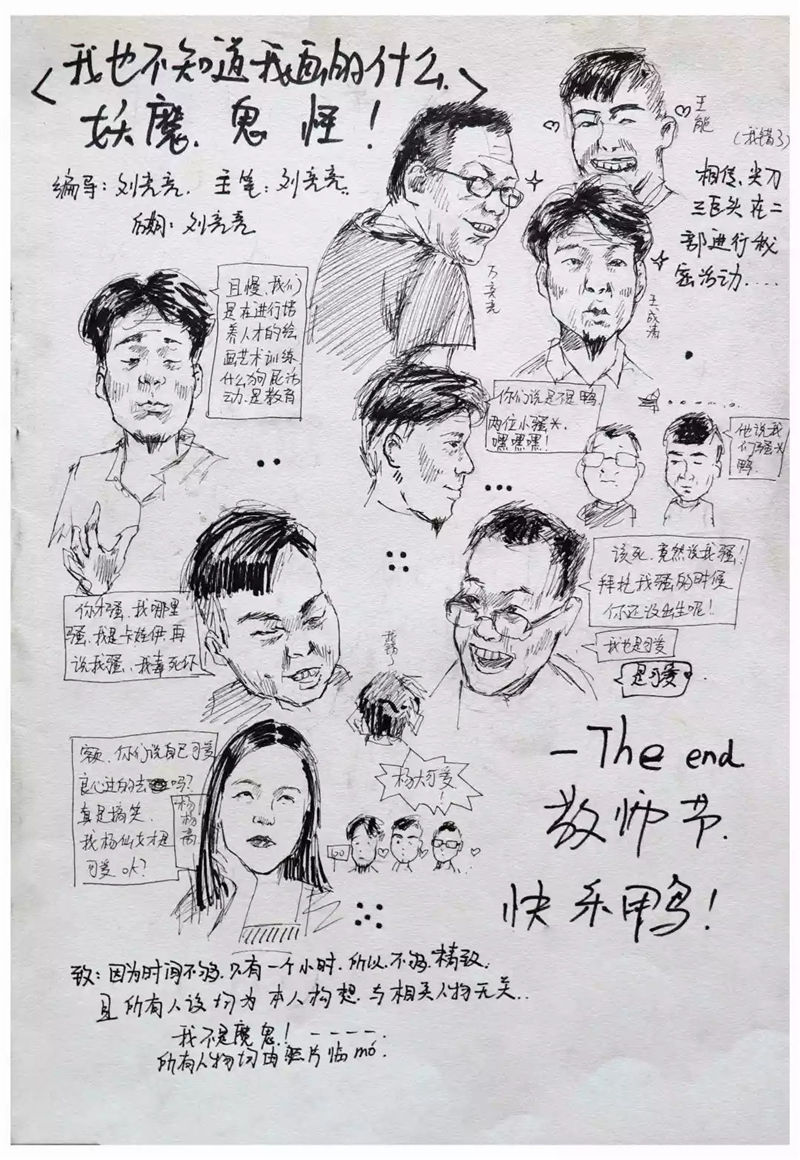 我也不知道我画的什么
妖魔、鬼怪！
编导：刘亮亮. 主笔：刘亮亮.
后期：刘亮亮
王能
(我错了)
相传，尖刀
三巨头在二
部进行秘
密活动....
万亮亮
王成涛
且慢，我们
是在进行培
养人才的绘
画艺术训练
什么狗屁活
动是教育
你们说是不是鸭
两位小强头，
嘿嘿嘿！
他说我
们强头
鸭
你才强，我哪里
强，我是卡姿伊再
说我强，我毒死你
该死，竟然说我强！
拜托我强的时候
你还没出生呢！
我也是可爱
是可爱
我错了
额，你们说自己可爱
良心过的去吗？
真是搞笑
我杨仙女才是
可爱 ok?
杨大可爱！
—The end
教师节
快乐鸭！
致：因为时间不够，只有一个小时，所以，不够精致，
且所有人设均为本人构想，与相关人物无关..
我不是魔鬼！————.
所有人物均由照片临mó.